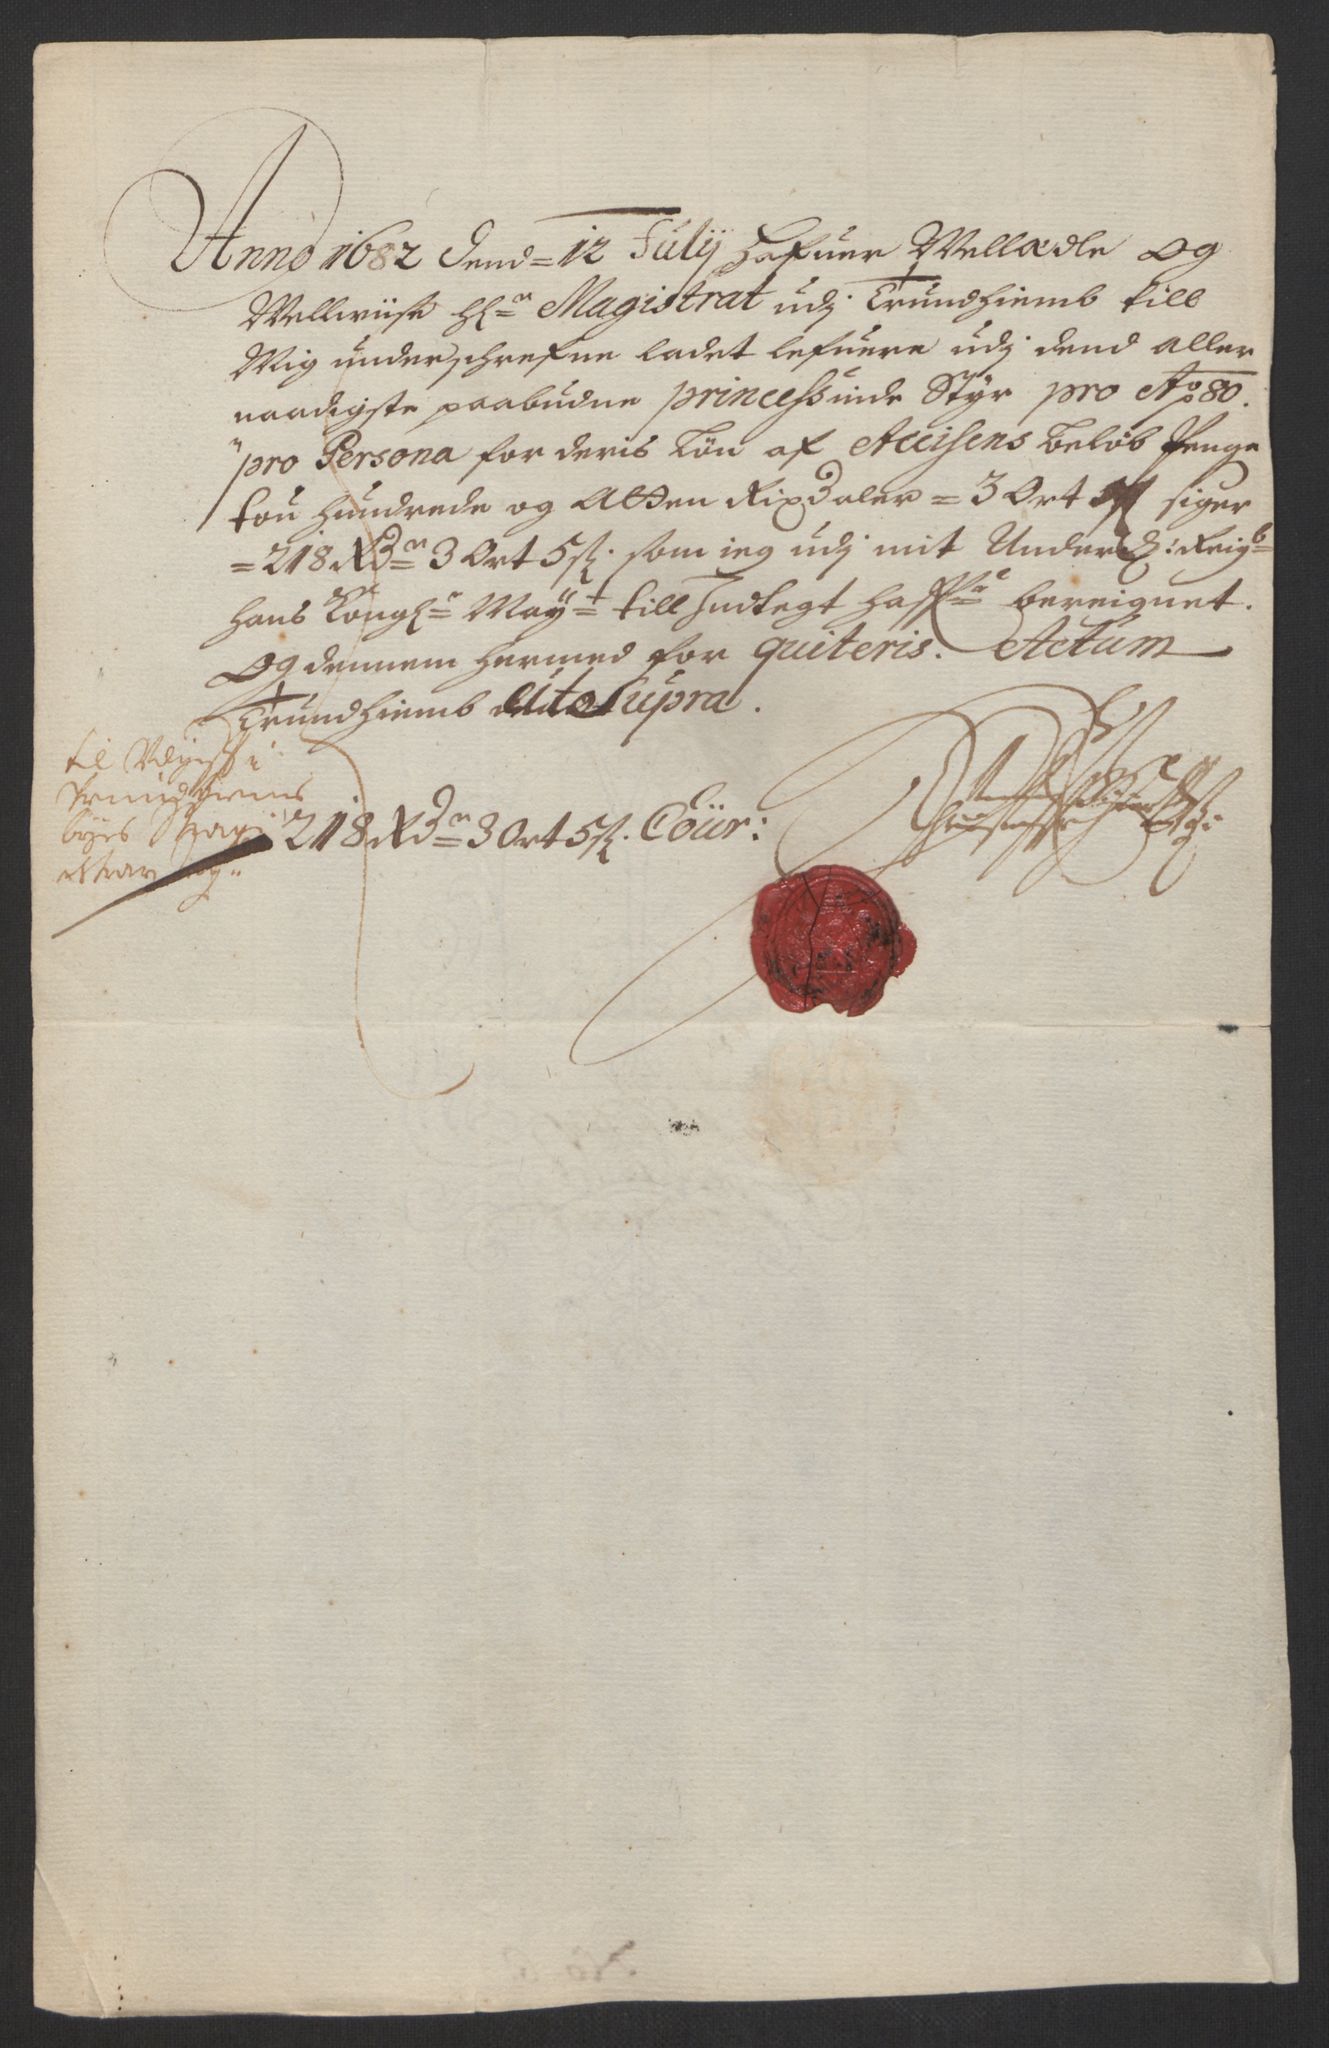 Anno 1682 Dend = 12 July Hafuer Wellædle og
Wellwiise HH=r Magistrat udj Trundhiemb till
Mig underschrefne ladet lefuere udj dend aller
naadigste paabudne princessinde Styr pro Ao 80.
pro Persona for deris Løn af Accisens beløb Penge
tou hundrede og Atten Rixdaler = 3 Ort 5 ß siger
= 218 Rd=r 3 Ort 5 ß. som ieg udj mit
hans Kongl=e May=t till Indtegt haffuer bereignet.
Og dennem hermed for quiteris. Actum
Trundhiemb Ut Supra.
til
Trundhiems
byes
218 Rd=r 3 Ort 5 ß. Cour: